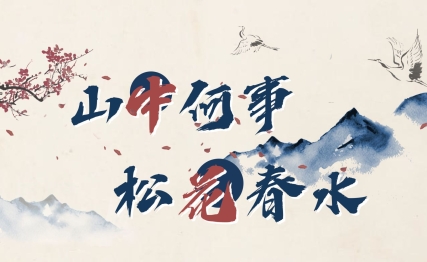 山中何事
松花春水